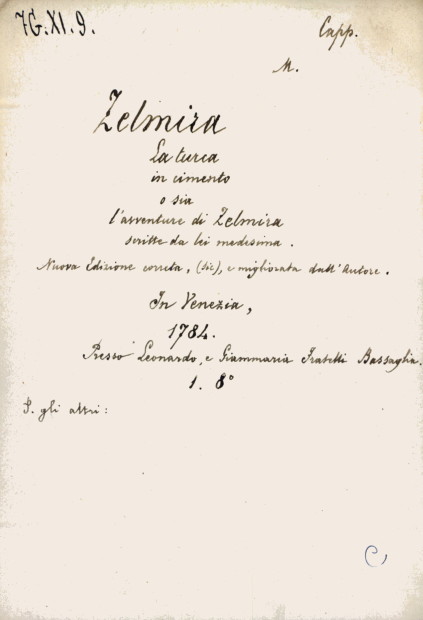 7G.XI.9.
Capp.
M.
Zelmira
La turca
in cimento
o sia
l'avventure di Zelmira
scritte da lei medesima.
Nuova Edizione correta, (sic), e migliorata dall'Autore.
In Venezia,
1784.
Presso Leonardo, e Giammaria Fratelli Bassaglia.
1. 8°
S. gli altri:
C,